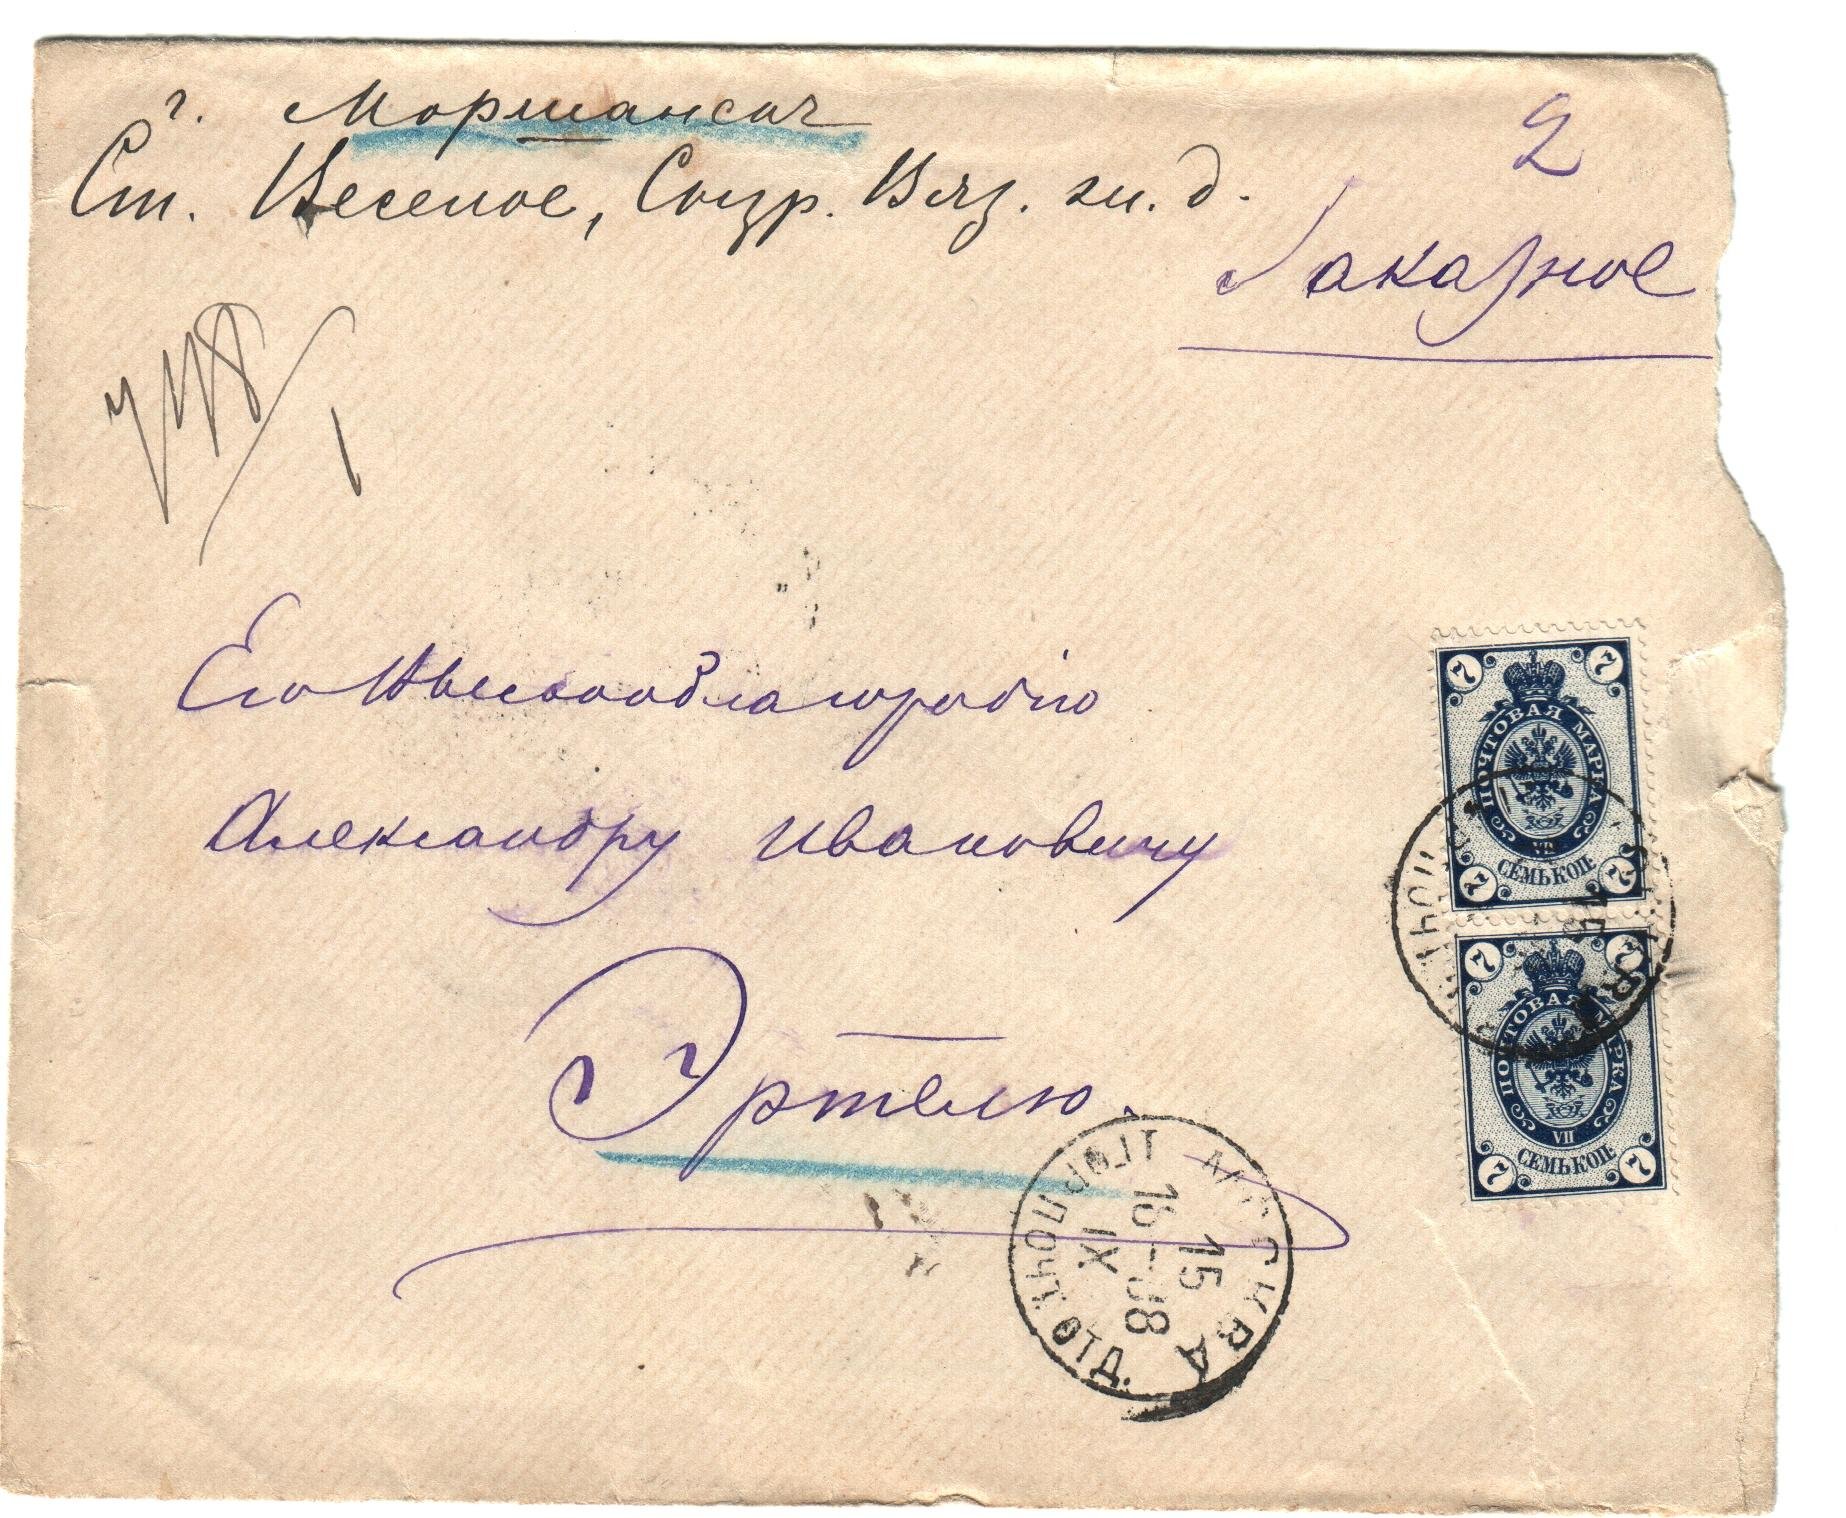 г. Моршанскъ
Ст. Веселое, Сызр. Вяз. ж. д.
2
Заказное
1
Его Высокоблагородію
Александру Ивановичу
Эртелю.
7 7
ПОЧТОВАЯ МАРКА
VII
СЕМЬ КОП.
7 7
7 7
ПОЧТОВАЯ МАРКА
VII
СЕМЬ КОП.
7 7
МОСКВА
15
16 - 08
IX
ГОР. ПОЧТ. ОТД.